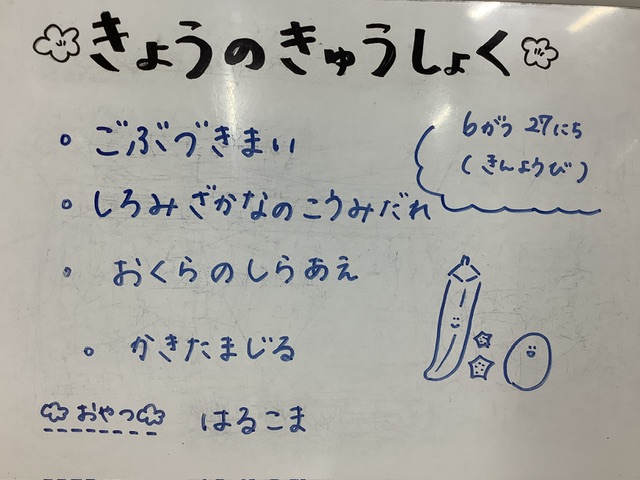 きょうのきゅうしょく
6がつ 27にち
(きんようび)
・ごぶづきまい
・しろみざかなのこうみだれ
・おくらのしらあえ
・かきたまじる
おやつ はるこま